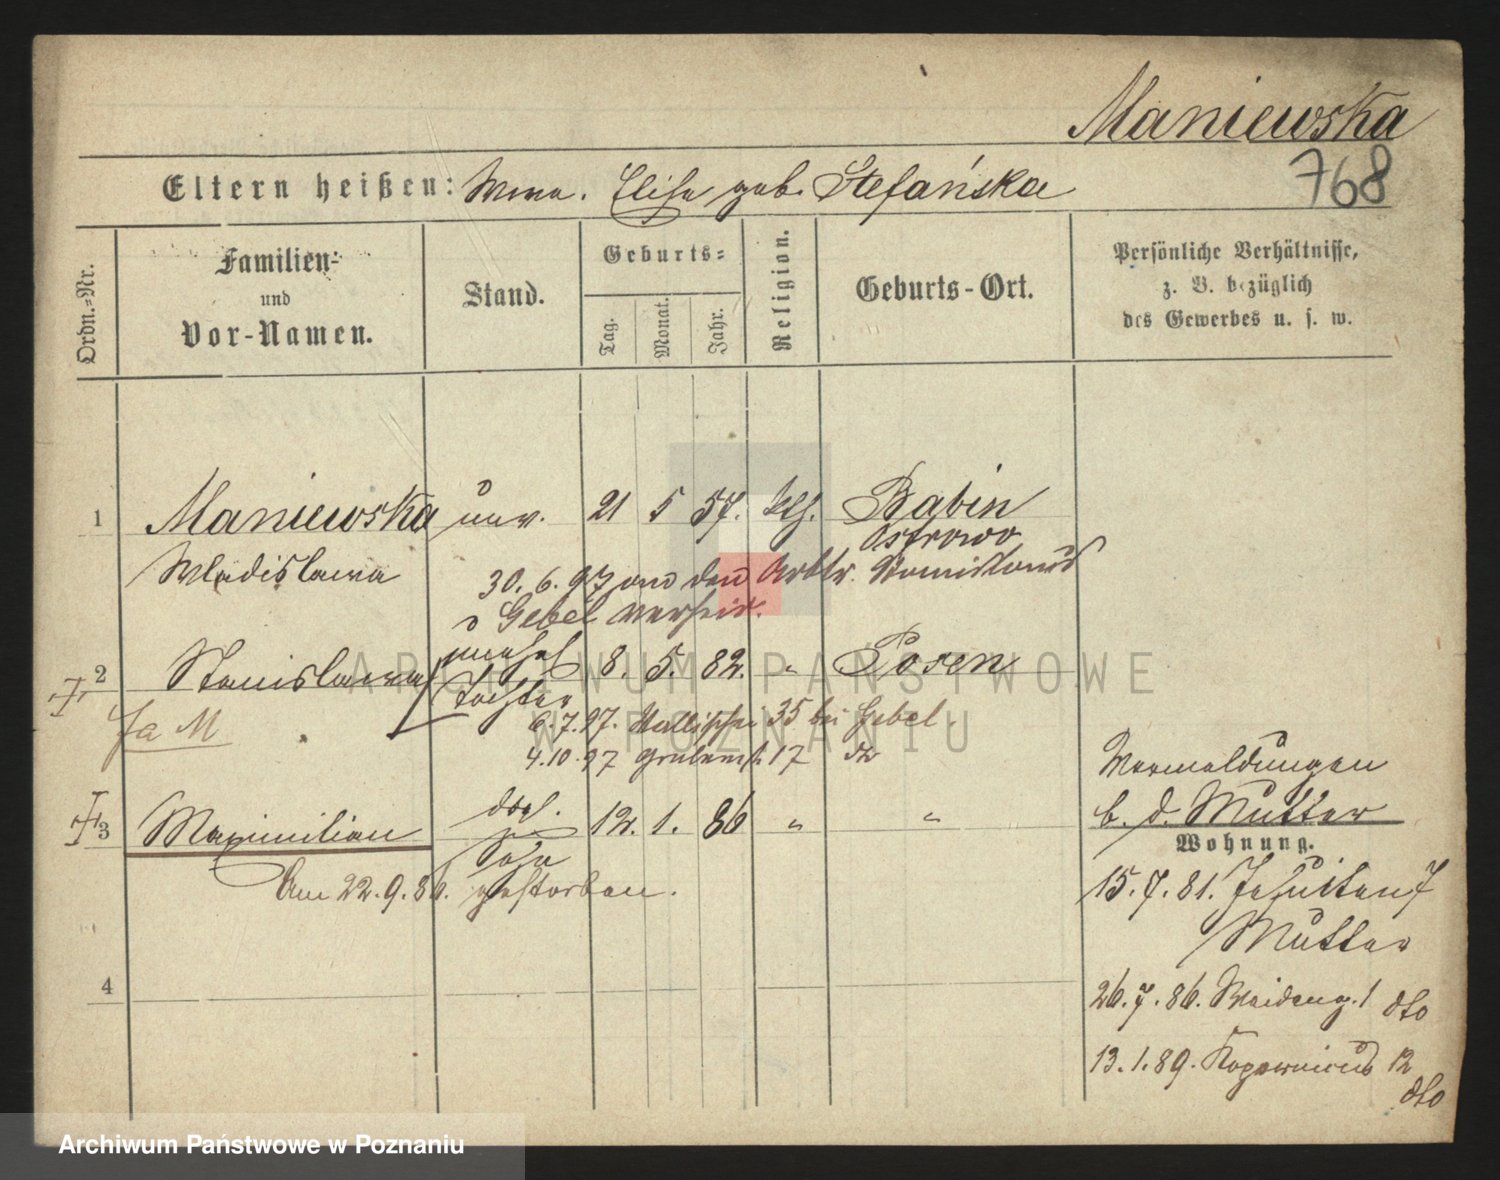 Maniewska
768
Eltern heißen: Wwe. Elise geb. Stefańska
Ordn.=Nr.
Familien=
und
Vor-Namen.
Stand.
Geburts=
Tag.
Monat.
Jahr.
Religion.
Geburts-Ort.
Persönliche Verhältnisse,
z. B. bezüglich
des Gewerbes u. s. w.
1 Maniewska unv. 21 5 57. kth. Babin
Ostrowo
Wladislawa
30. 6. 97 an den Arbtr. Stanislaus
Gebel verheir.
2 Stanislawa unehel 8. 5. 82. " Posen
Tochter
6.7.97. Wallischei 35 bei Gebel.
4.10.97 Grabenstr 17 do
3 Maximilian dsgl. 12. 1. 86 " "
Sohn
Am 22.9.86. gestorben.
4
Vermeldungen
b. d. Mutter
Wohnung.
15.7.81. Jesuiten 7
Mutter
26.7.86. Weideng. 1 dto
13.1.89. Kopernicus 12
dto
ARCHIWUM PAŃSTWOWE
W POZNANIU
Archiwum Państwowe w Poznaniu